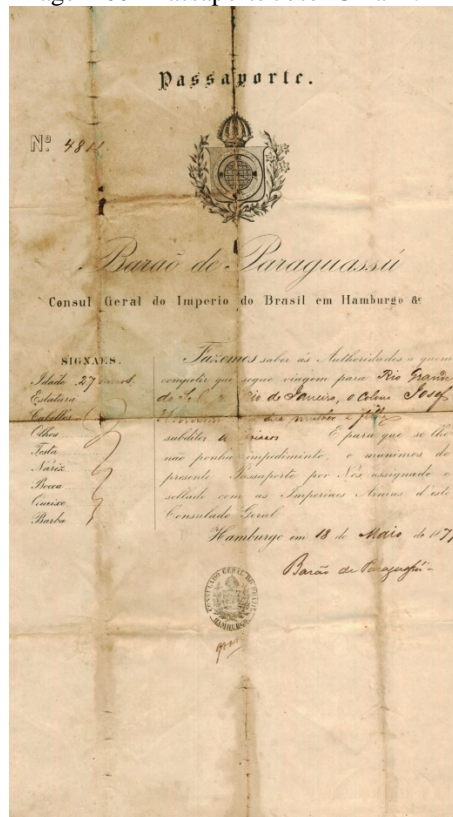 Passaporte.
Nº 4811
Barão de Paraguassú
Consul Geral do Imperio do Brasil em Hamburgo &c
SIGNAES.
Idade 27 annos.
Estatura
Cabellos
Olhos
Testa
Nariz
Bocca
Queixo
Barba
Fazemos saber às Authoridades a quem
competir que segue viagem para Rio Grande
do Sul Rio de Janeiro, o Colono Josef
mulher e
subditos E para que se lhe
não ponha impedimento, o munimos do
presente Passaporte por Nós assignado e
sellado com as Imperiaes Armas d'este
Consulado Geral
Hamburgo em 18 de Maio de 187
Barão de Paraguassú
CONSULADO GERAL DO BRASIL
HAMBURGO